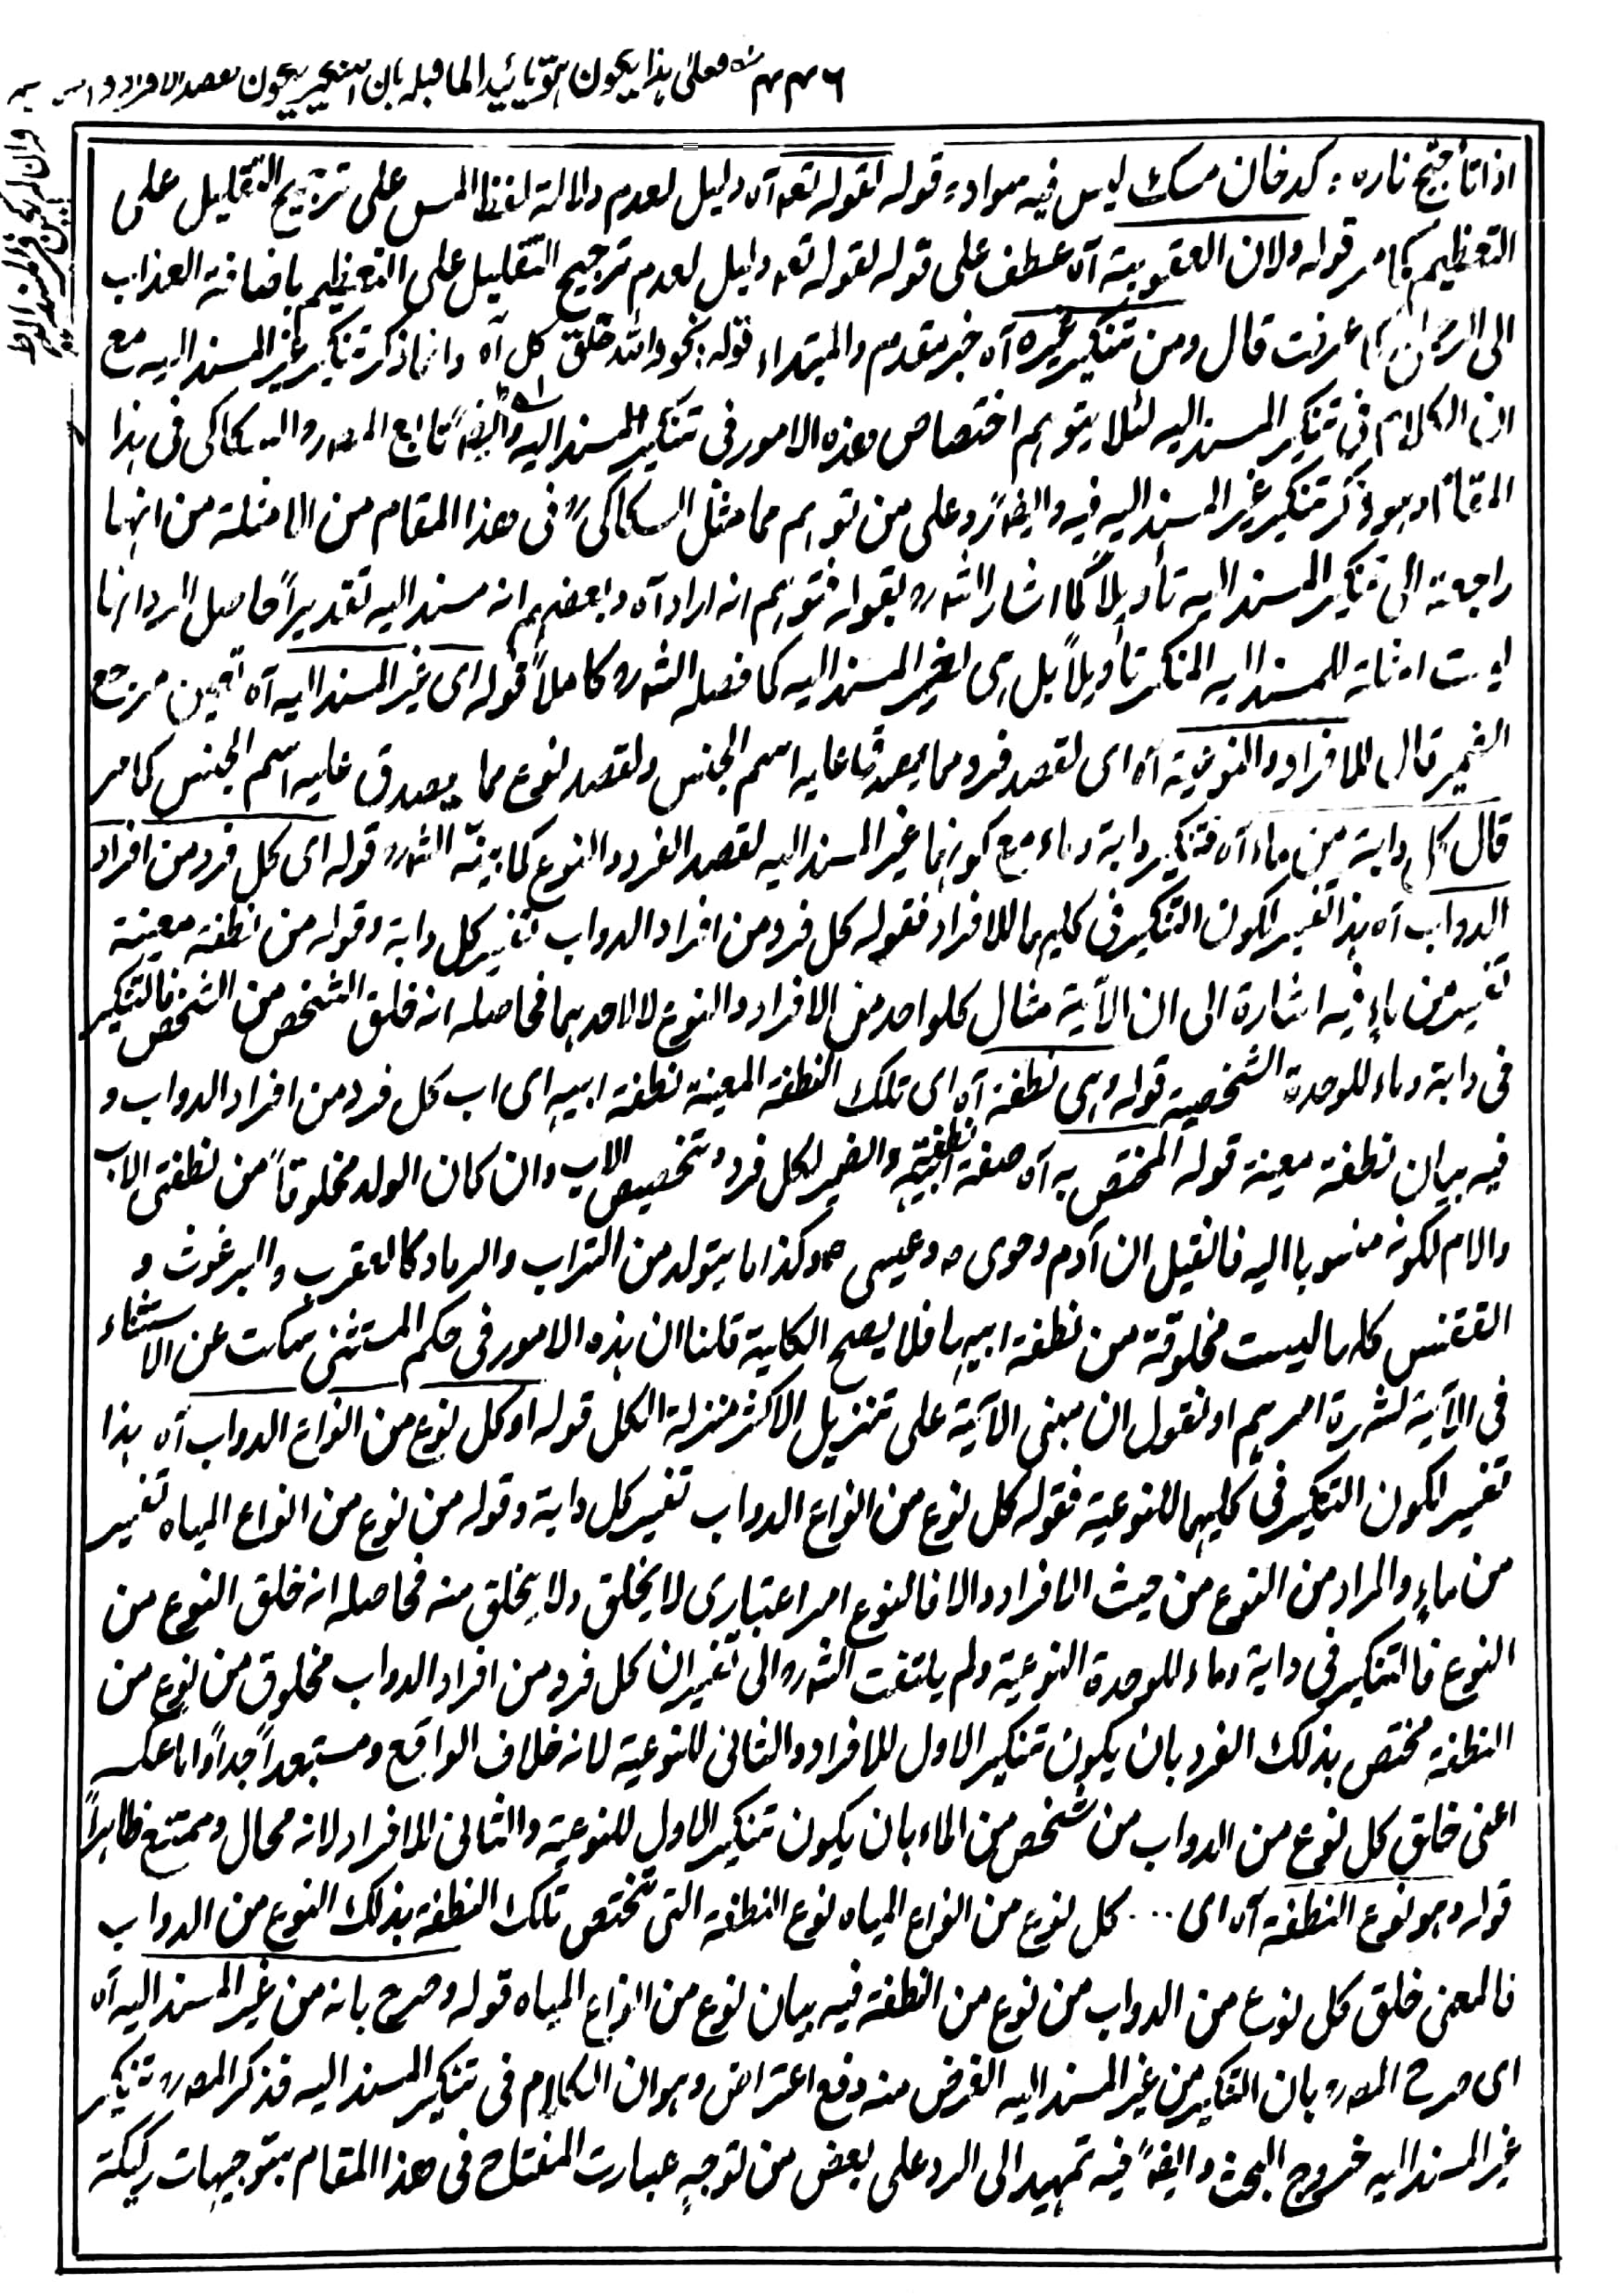 ۴۴۶
اذا تأجج ناره : كدخان مسك ليس فيه سواد؛ قوله لقوله تعه آه دليل لعدم دلالة لفظ المس على ترجيح التقليل على
التعظيم كما مر قوله ولان العقوبة آه عطف على قوله لقوله تعه دليل لعدم ترجيح التقليل على التعظيم باضافة العذاب
الى الرحمن كما عرفت قال ومن تنكير غيره آه خبر مقدم والمبتداء قوله نحو والله خلق كل آه وانما ذكر تنكير غير المسند اليه مع
ان الكلام فى تنكير المسند اليه لئلا يتوهم اختصاص هذه الامور فى تنكير المسند اليه وايضاً تابع المصر والسكاكى فى هذا
المقام وهو ذكر تنكير غير المسند اليه فيه وايضاً رد على من توهم مما مثل السكاكى فى هذا المقام من الامثلة من انها
راجعة الى تنكير المسند اليه تأويلاً كما اشار الشه ره بقوله فتوهم انه اراد آه وبعضهم انه مسند اليه تقديراً حاصل الرد انها
ليست امثلة للمسند اليه المنكر تأويلاً بل هى لغير المسند اليه كما فصله الشه ره كاملاً قوله اى غير المسند اليه آه تعيين مرجع
الضمير قال للافراد والنوعية آه اى لقصد فرد مما يصدق عليه اسم الجنس ولقصد نوع مما يصدق عليه اسم الجنس كما مر
قال كل دابة من ماء آه فتنكير دابة وماء مع كونهما غير المسند اليه لقصد الفرد والنوع كما بينه الشه ره قوله اى كل فرد من افراد
الدواب آه هذا تفسير لكون التنكير فى كليهما للافراد فقوله كل فرد من افراد الدواب تفسير كل دابة وقوله من نطفة معينة
تفسير من ماءٍ فيه اشارة الى ان الآية مثال كلواحد من الافراد والنوع لا لاحدهما فحاصله انه خلق الشخص من الشخص فالتنكير
فى دابة وماء للوحدة الشخصية قوله وهى نطفة آه اى تلك النطفة المعينة نطفة ابيه اى اب كل فرد من افراد الدواب و
فيه بيان نطفة معينة قوله المختص به آه صفة نطفة ابيه والضمير لكل فرد وتخصيص الاب وان كان الولد مخلوقاً من نطفتى الاب
والام لكونه منسوبا اليه فانقيل ان آدم وحوى ه وعيسى ه وكذا ما يتولد من التراب والرماد كالعقرب والبرغوث و
الققنس كلها ليست مخلوقة من نطفة ابيها فلا يصح الكلية قلنا ان هذه الامور فى حكم المستثنى سكت عن الاستثناء
فى الآية لشهرة امرهم او نقول ان مبنى الآية على تنزيل الاكثر منزلة الكل قوله او كل نوع من انواع الدواب آه هذا
تفسير لكون التنكير فى كليهما للنوعية فقوله كل نوع من انواع الدواب تفسير كل دابة وقوله من نوع من انواع المياه تفسير
من ماءٍ والمراد من النوع من حيث الافراد والا فالنوع امر اعتبارى لا يخلق ولا يخلق منه فحاصله انه خلق النوع من
النوع فالتنكير فى دابة وماء للوحدة النوعية ولم يلتفت الشه ره الى تفسير ان كل فرد من افراد الدواب مخلوق من نوع من
النطفة مختص بذلك الفرد بان يكون تنكير الاول للافراد والثانى للنوعية لانه خلاف الواقع ومستبعد جداً واما عكسه
اعنى خلق كل نوع من الدواب من شخص من الماء بان يكون تنكير الاول للنوعية والثانى للافراد لانه محال وممتنع ظاهراً
قوله وهو نوع النطفة آه اى ... كل نوع من انواع المياه نوع النطفة التى تختص تلك النطفة بذلك النوع من الدواب
فالمعنى خلق كل نوع من الدواب من نوع من النطفة فيه بيان نوع من انواع المياه قوله وصرح بانه من غير المسند اليه آه
اى صرح المصر ره بان التنكير من غير المسند اليه الغرض منه دفع اعتراض وهو ان الكلام فى تنكير المسند اليه فذكر المصر ره تنكير
غير المسند اليه خروج البحث وايضاً فيه تمهيد الى الرد على بعض من توجيه عبارت المفتاح فى هذا المقام بتوجيهات ركيكة